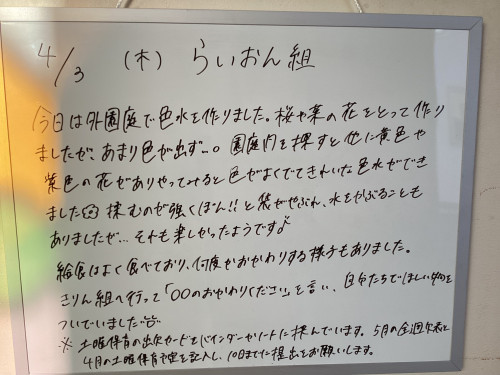 4/3 (木) らいおん組
今日は外園庭で色水を作りました。桜や菜の花をとって作り
ましたが、あまり色が出ず…。園庭内を探すと他に黄色や
紫色の花がありやってみると色がよくでてきれいな色水ができ
ました 揉むのが強くぼん!!と袋がやぶれ、水をかぶることも
ありましたが…それも楽しかったようです♪
給食はよく食べており、何度かおかわりする様子もありました。
きりん組へ行って「〇〇のおかわりください」と言い、自分たちでほしい物を
ついでいました
※土曜保育の出欠カードをバインダーかノートに挟んでいます。5月の
4月の土曜保育予定を記入し、10日までに提出をお願いします。